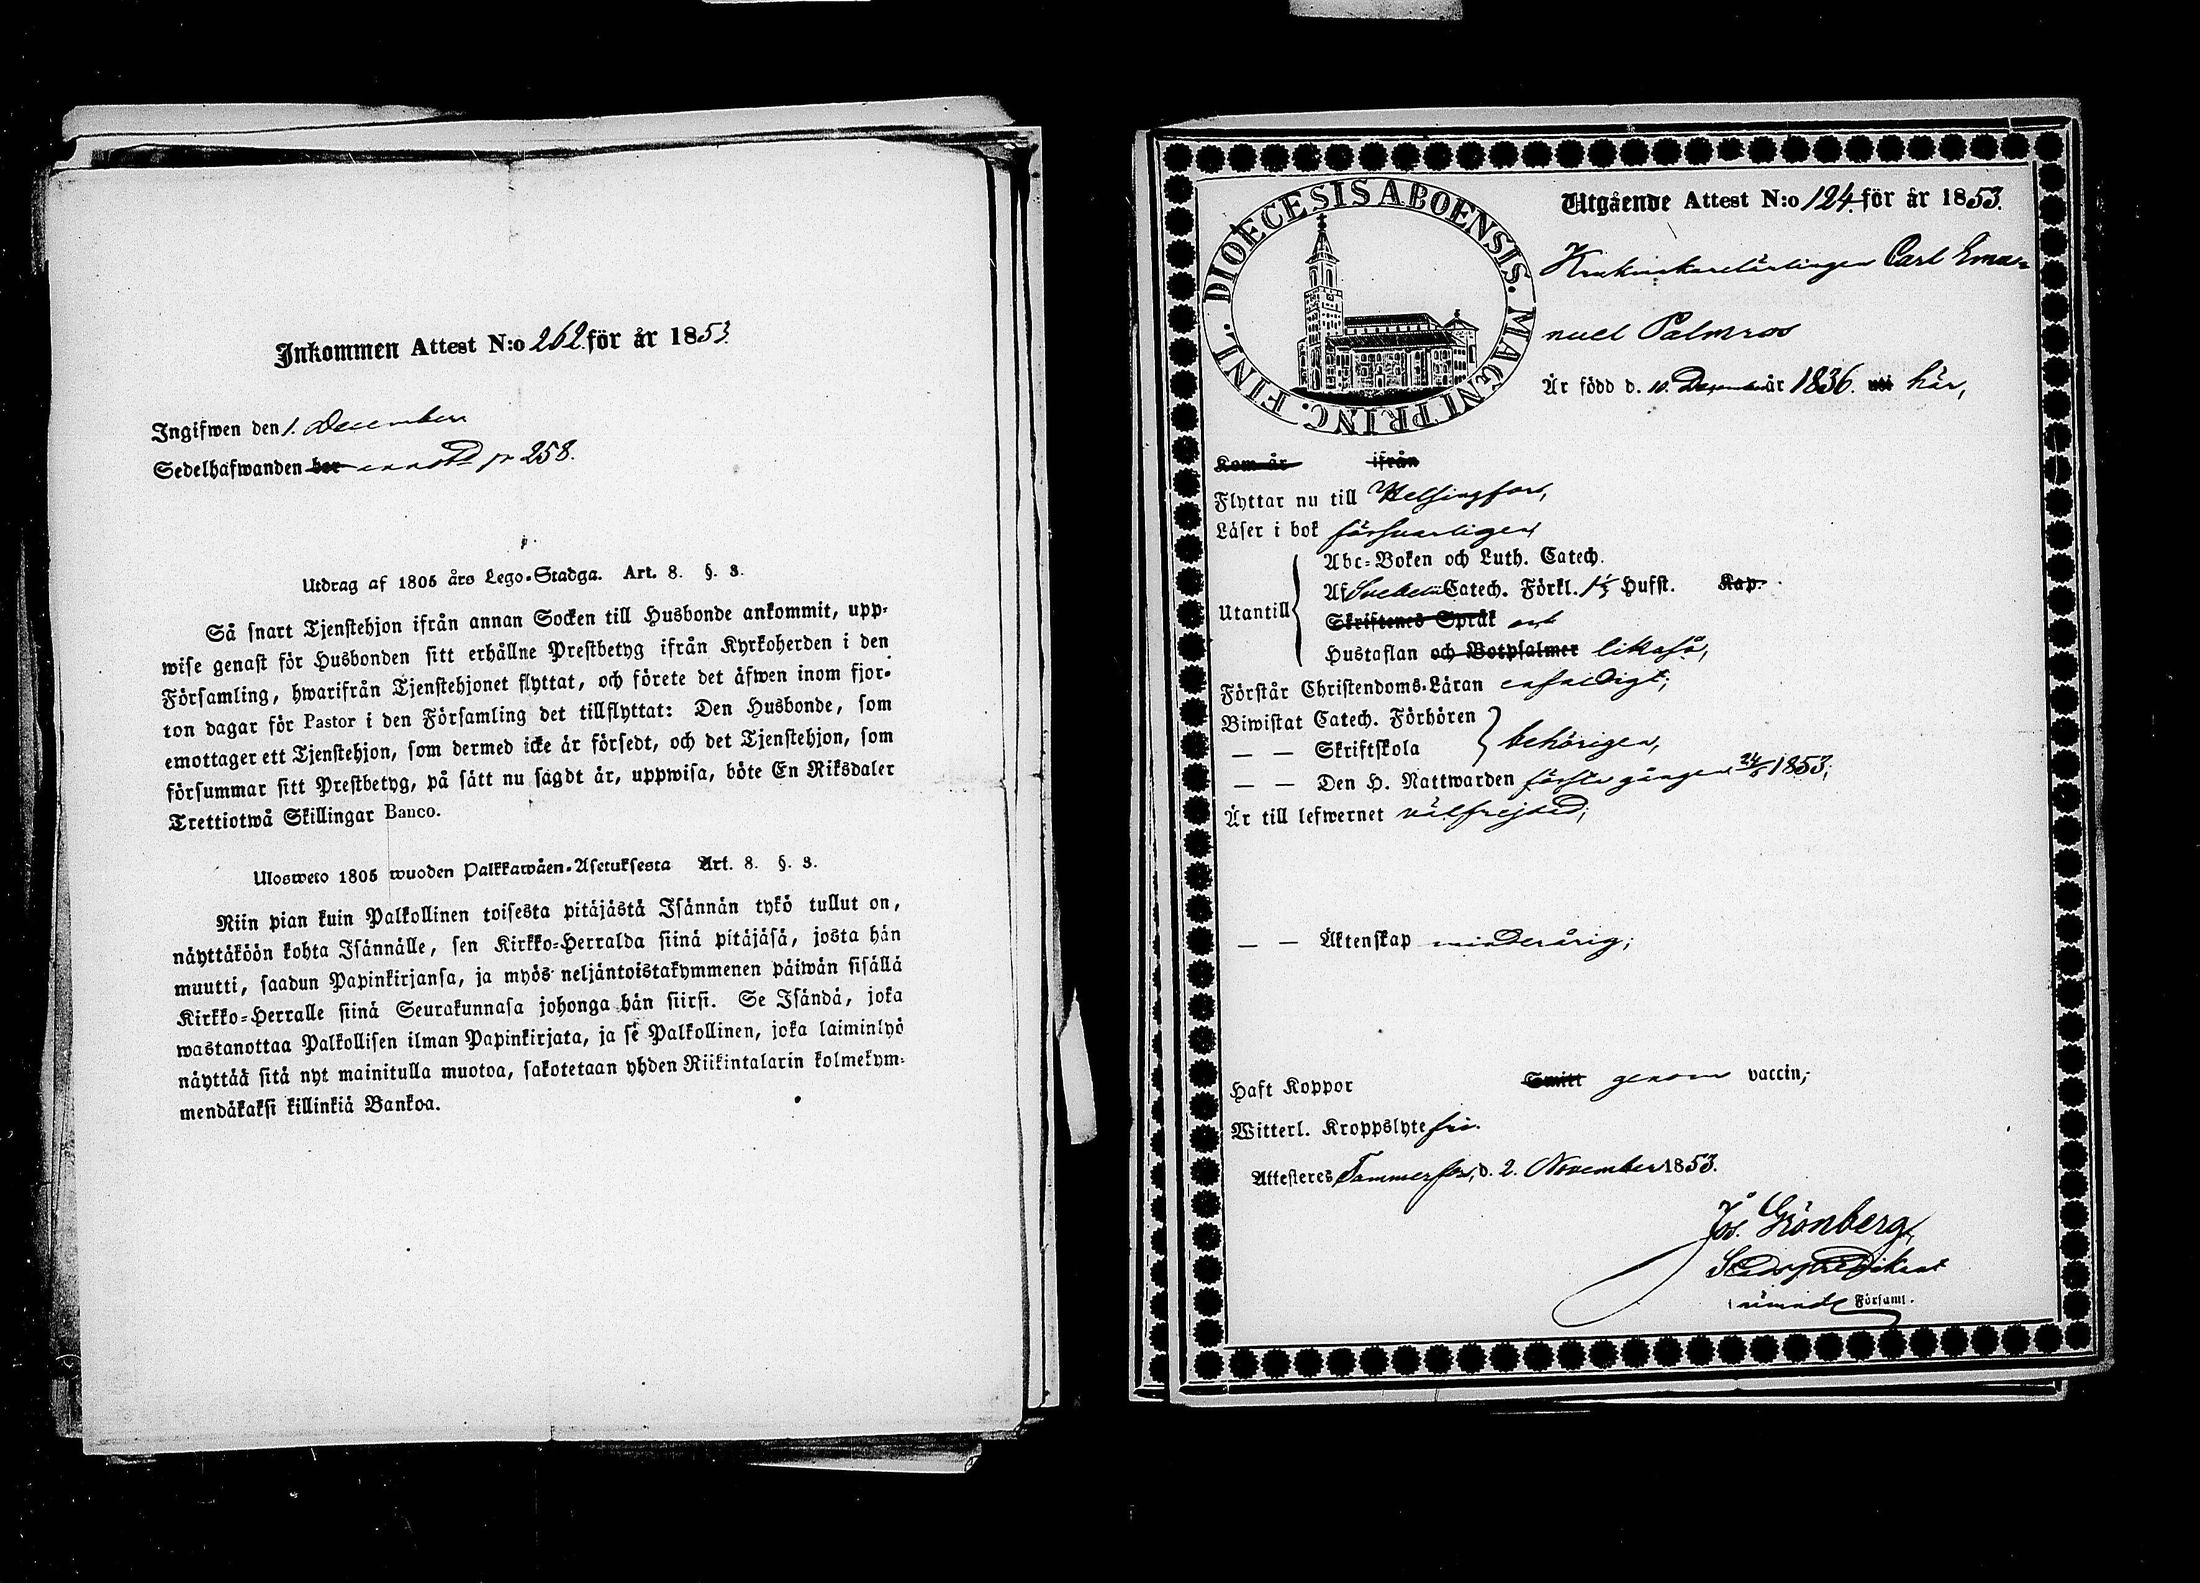 Inkommen Attest N:o 262. för år 1853.
Ingifwen den 1. December
Sedelhafwanden bor 258.
Utdrag af 1805 års Lego-Stadga. Art. 8. §. 3.
Så snart Tjenstehjon ifrån annan Socken till Husbonde ankommit, upp-
wise genast för Husbonden sitt erhållne Prestbetyg ifrån Kyrkoherden i den
Församling, hwarifrån Tjenstehjonet flyttat, och förete det äfwen inom fjor-
ton dagar för Pastor i den Församling det tillflyttat: Den Husbonde, som
emottager ett Tjenstehjon, som dermed icke är försedt, och det Tjenstehjon, som
försummar sitt Prestbetyg, på sätt nu sagdt är, uppwisa, böte En Riksdaler
Trettiotwå Skillingar Banco.
Ulosweto 1805 wuoden Palkkawäen-Asetuksesta Art. 8. §. 3.
Niin pian kuin Palkollinen toisesta pitäjästä Isännän tykö tullut on,
näyttäköön kohta Isännälle, sen Kirkko-Herralda siinä pitäjäsä, josta hän
muutti, saadun Papinkirjansa, ja myös neljäntoistakymmenen päiwän sisällä
Kirkko-Herralle siinä Seurakunnasa johonga hän siirsi. Se Isändä, joka
wastanottaa Palkollisen ilman Papinkirjata, ja se Palkollinen, joka laiminlyö
näyttää sitä nyt mainitulla muotoa, sakotetaan yhden Riikintalarin kolmekym-
mendäkaksi killinkiä Bankoa.
DIOECESIS ABOENSIS. MAGNI PRINC. FINL.
Utgående Attest N:o 124. för år 1853.
Krukmakarelärlingen Carl Ema-
nuel Palmros
Är född d. 10. December år 1836. uti här,
Kom år ifrån
Flyttar nu till Helsingfors,
Läser i bok försvarligen
Utantill
Abc-Boken och Luth. Catech.
Af Svebelii Catech. Förkl. Hufst. Kap.
Skriftenes Språk och
Hustaflan och Botpsalmer likaså,
Förstår Christendoms-Läran enfaldigt,
Biwistat Catech. Förhören
— — Skriftskola behörigen,
— — Den H. Nattwarden första gången 1853;
Är till lefwernet välfrejdad;
— — Äktenskap minderårig;
Haft Koppor Smitt genom vaccin,
Witterl. Kroppslyte fri.
Attesteres Tammerfors, d. 2. November 1853.
Jos. Grönberg,
Stadspredikant
i nämnde Församl.